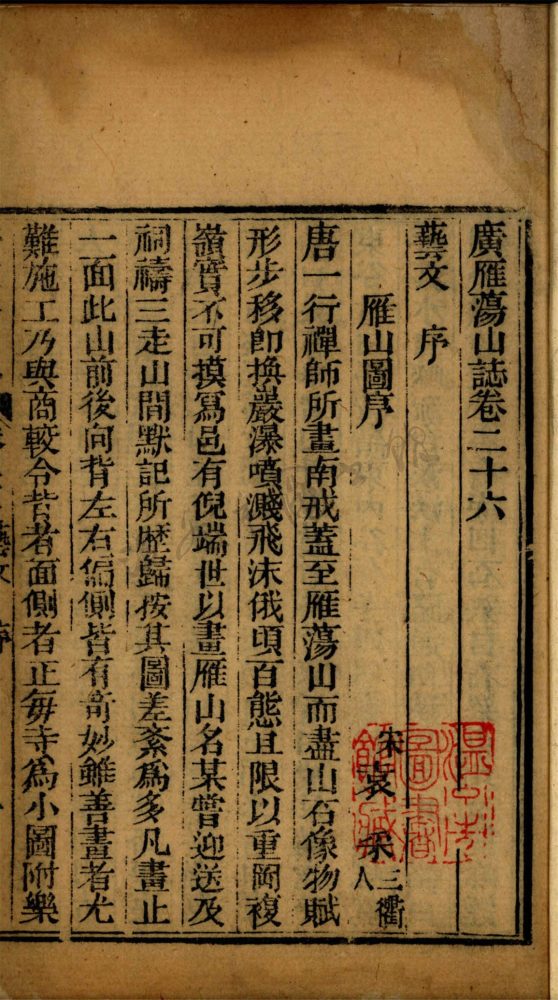 廣雁蕩山誌卷二十六
藝文　序
雁山圖序
宋袁采三衢人
唐一行禪師所畫南戒蓋至雁蕩山而盡山石像物賦
形步移卽換巖瀑噴濺飛沫俄頃百態且限以重岡複
嶺實不可摸寫邑有倪端世以畫雁山名某嘗迎送及
祠禱三走山間默記所歷歸按其圖差紊爲多凡畫止
一面此山前後向背左右偏側皆有竒妙雖善畫者尤
難施工乃與商較令背者面側者正每寺爲小圖附樂